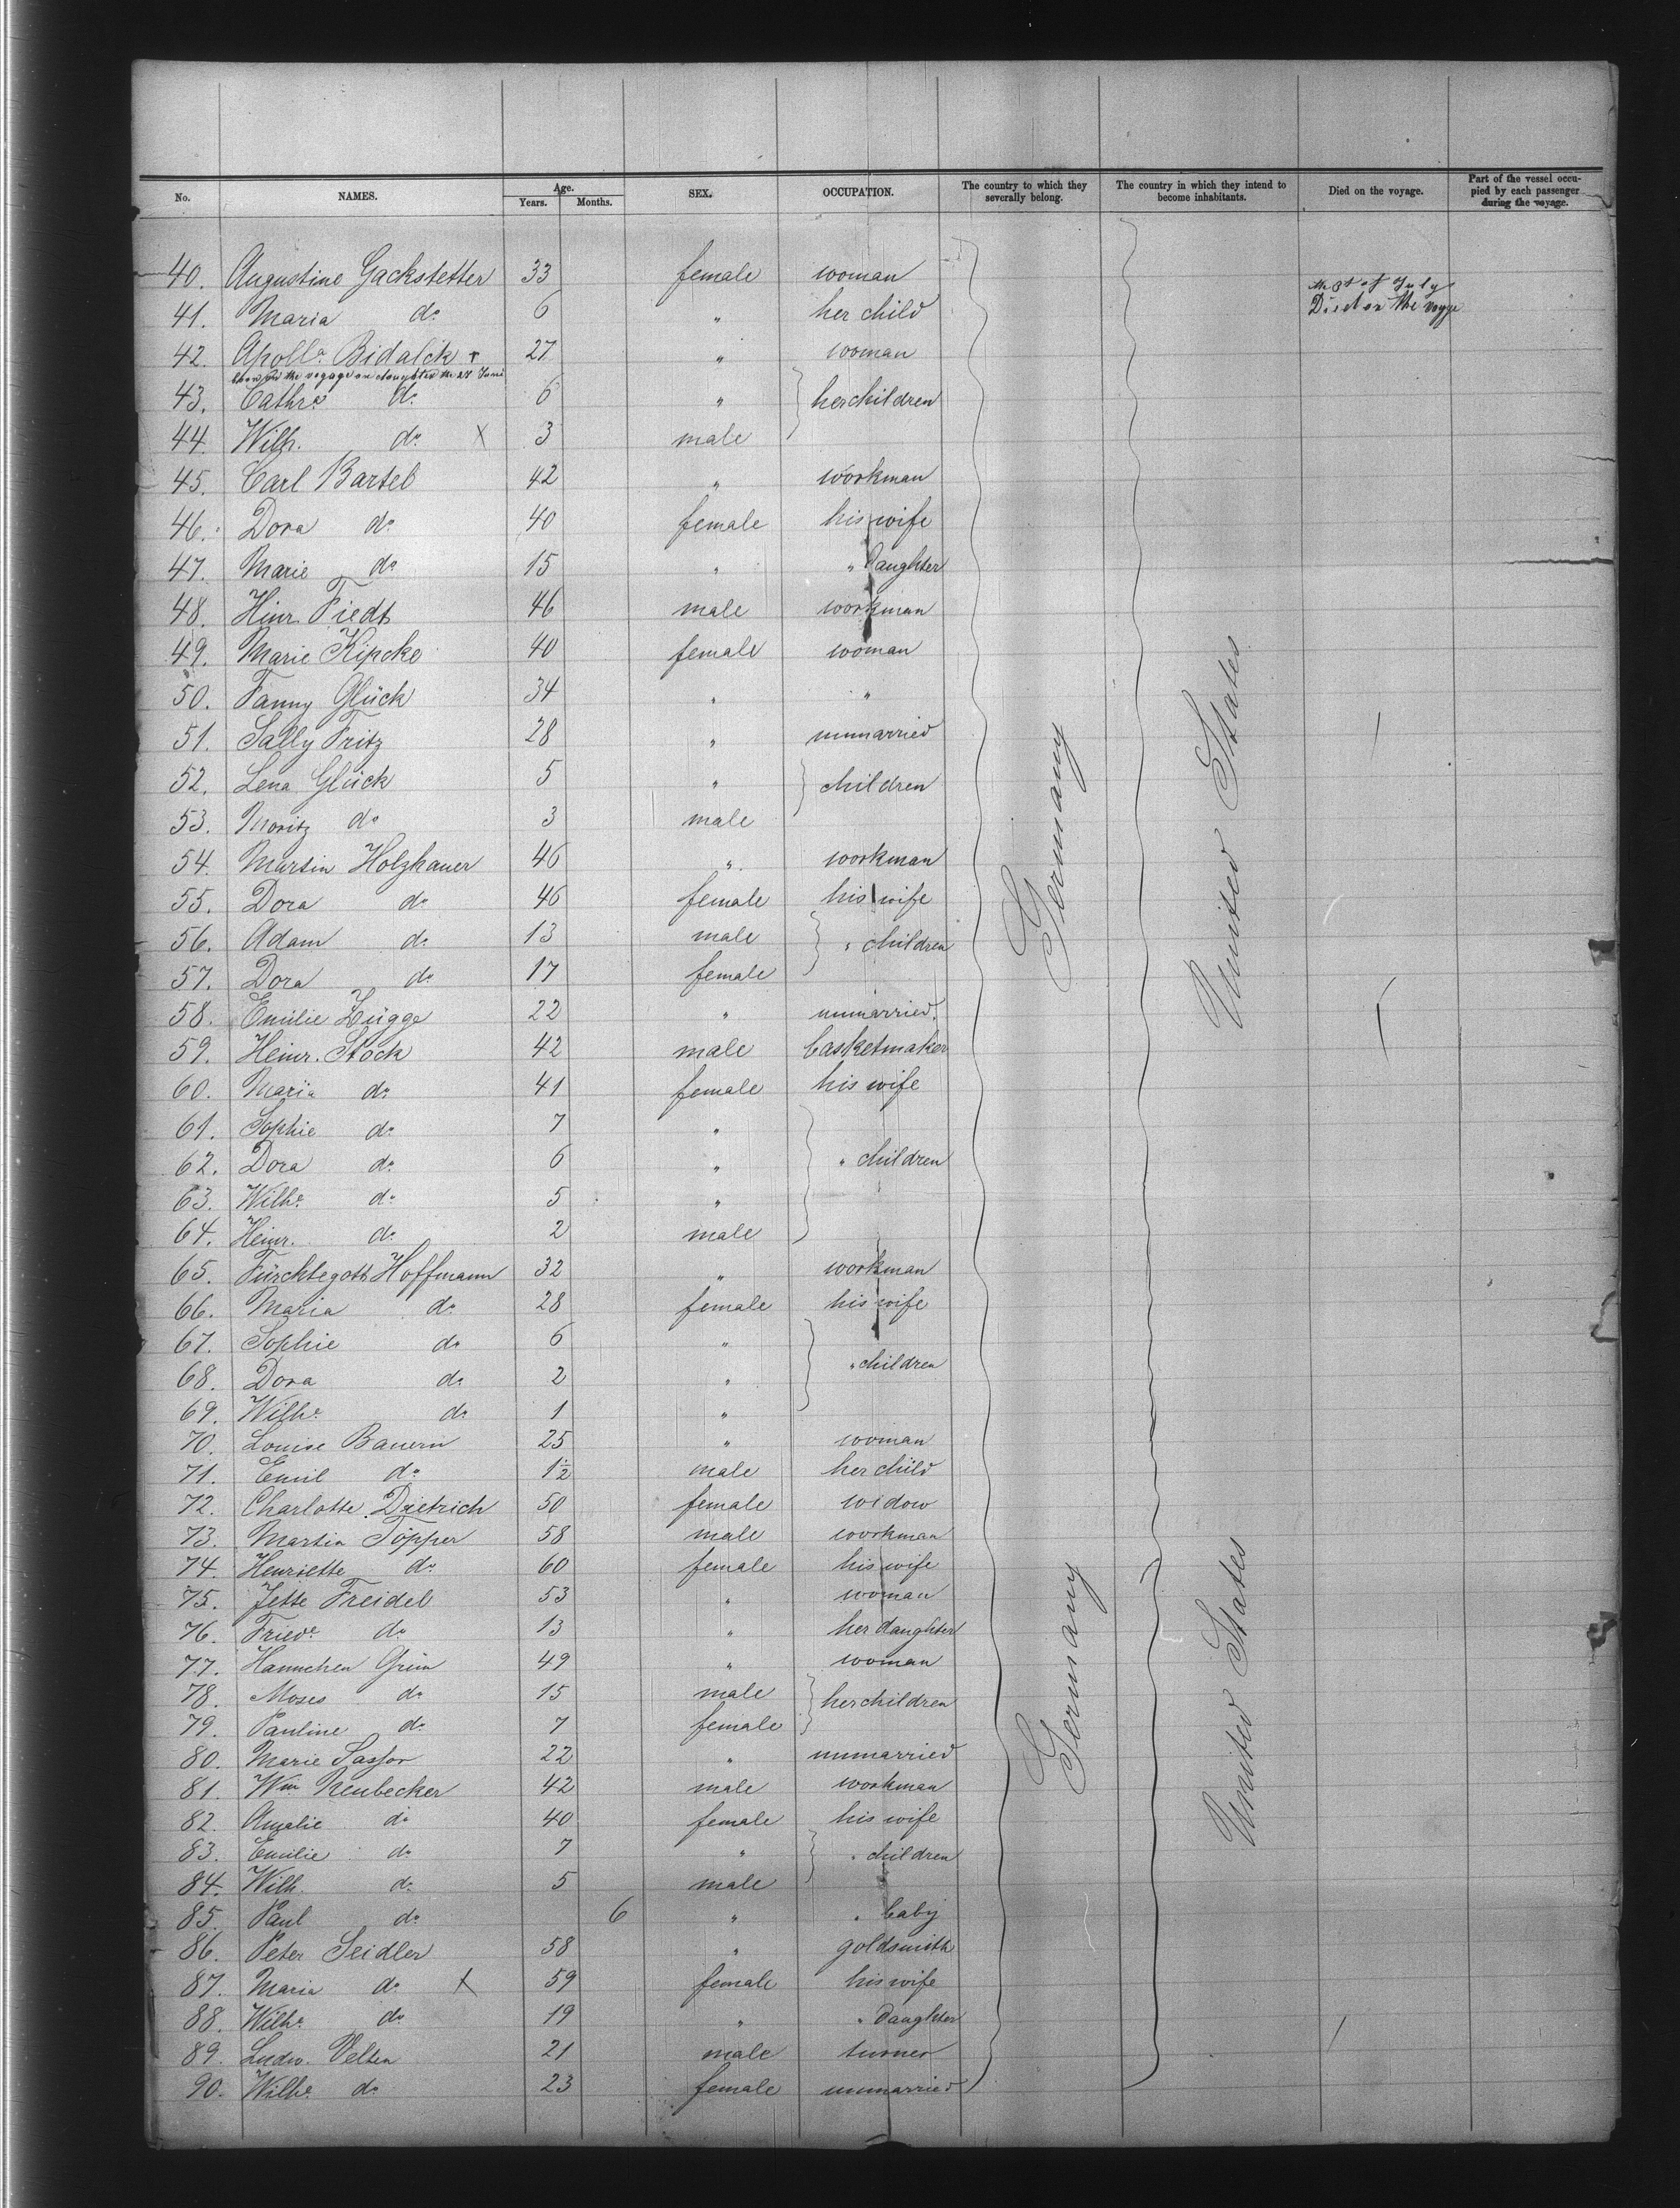 No. NAMES. Age. Years. Months. SEX. OCCUPATION. The country to which they severally belong. The country in which they intend to become inhabitants. Died on the voyage. Part of the vessel occupied by each passenger during the voyage.
40. Augustine Gackstetter 33 female woman
41. Maria do 6 " her child Died on the voyge
42. Apolla Bidalck 27 " woman
born on the voyage on daughter the 27 Juni
43. Cathra do 6 " her children
44. Wilh. do X 3 male
45. Carl Bartel 42 " workman
46. Dora do 40 female his wife
47. Marie do 15 " " Daughter
48. Hinr. Tiedt 46 male workman
49. Marie Kipcke 40 female woman
50. Fanny Glück 34 " "
51. Sally Fritz 28 " unmarried
52. Lena Glück 5 " children
53. Moritz do 3 male
54. Martin Holzhauer 46 " workman
55. Dora do 46 female his wife
56. Adam do 13 male " children
57. Dora do 17 female
58. Emilie Zügge 22 " unmarried.
59. Heinr. Stock 42 male basketmaker
60. Maria do 41 female his wife
61. Sophie do 7 "
62. Dora do 6 " " children
63. Wilhe do 5 "
64. Heinr. do 2 male
65. Fürchtegott Hoffmann 32 " workman
66. Maria do 28 female his wife
67. Sophie do 6 "
68. Dora do 2 " " children
69. Wilhe do 1 "
70. Louise Bauerin 25 " woman
71. Emil do 1½ male her child
72. Charlotte Dietrich 50 female widow
73. Martin Töpper 58 male workman
74. Henriette do 60 female his wife
75. Jette Freidel 53 " woman
76. Friede do 13 " her daughter
77. Hannchen Grün 49 " woman
78. Moses do 15 male her children
79. Pauline do 7 female
80. Marie Sassor 22 " unmarried
81. Wm Neubecker 42 male workman
82. Amalie do 40 female his wife
83. Emilie do 7 " " children
84. Wilh. do 5 male
85. Paul do 6 " " baby
86. Peter Seidler 58 " goldsmith
87. Maria do X 59 female his wife
88. Wilhe do 19 " " Daughter
89. Ludw. Velten 21 male turner
90. Wilhe do 23 female unmarried
Germany
United States
Germany
United States